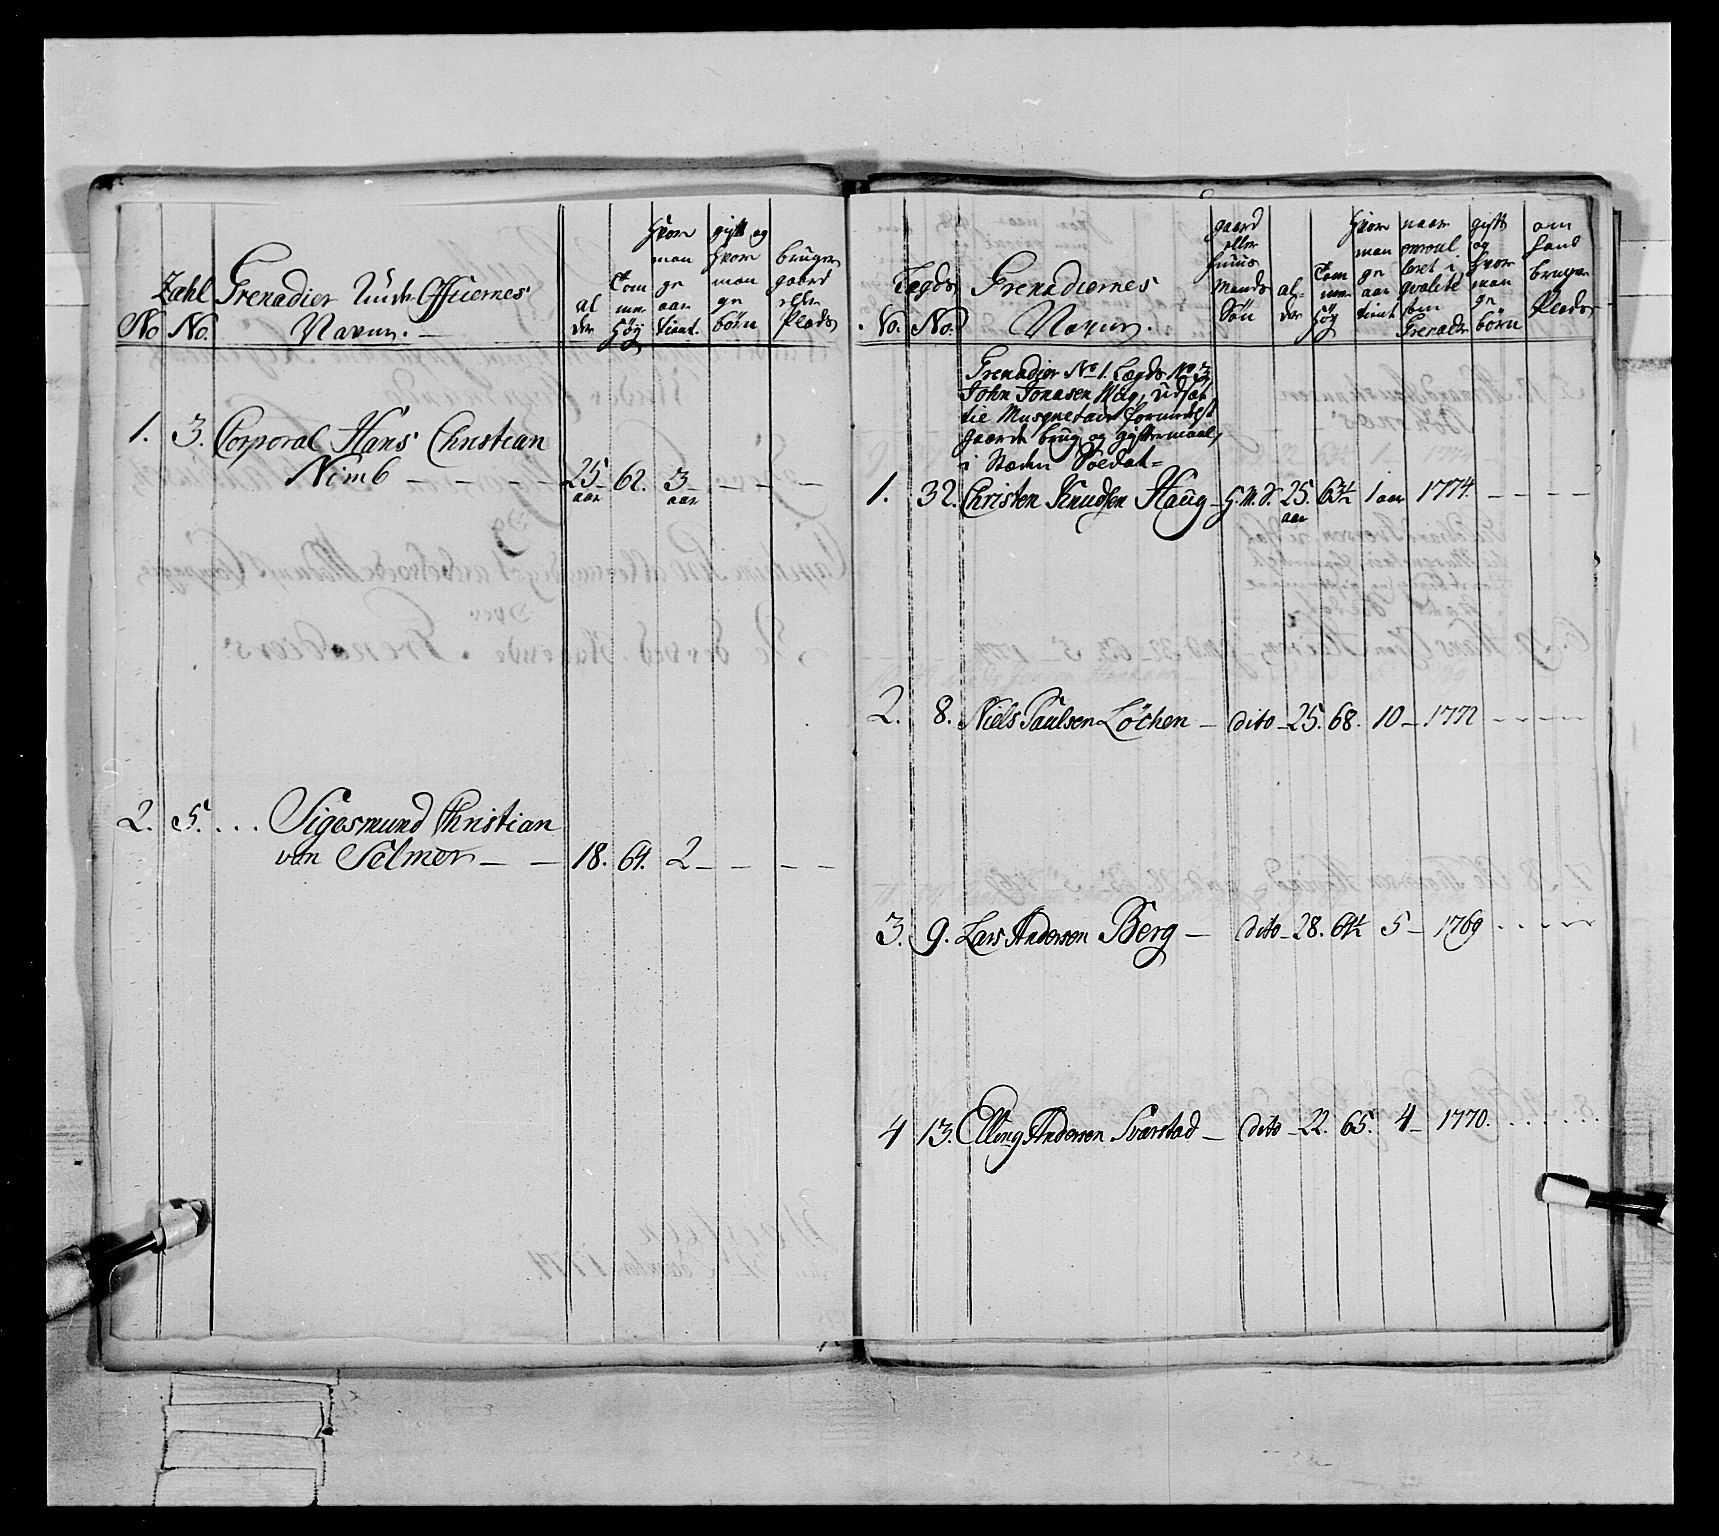 No
Zahl No.
Grenadier Under Officernes
Navne.
al
der
Tom
mer
Høy
hvor
man
ge
aar
tient.
gift og
hvor
man
ge
børn
bruger
gaard
eller
Plads
1. 3. Corporal Hans Christian
Nimb - - - - 25 aar 62. 3 aar - - -
2. 5. ... Sigesmund Christian
von Selmer - - 18. 64. 2 - - - -
No.
Lægds
No.
Grenadiernes
Navne.
gaard
eller
huus
Mands
Søn
al-
der
Tom
mer
Høy
hvor
man
ge
aar
tient
naar
enroul
leret i
qvalite
som
Grenader
gift
og
hvor
man
ge
børn
om
hand
bruger
Plads
Grenadier No 1. Lægds No 3
John Jonasen
tie Musquetair formedelst
gaards brug og giftermaal,
i Stæden Soldat=
1. 32. Christen Knudsen Haug - G.M.S. 25. aar 63½ 1 aar 1774. - - - -
2. 8. Niels Paulsen Løchen - dito - 25. 68. 10 - 1772 - - - -
3. 9. Lars Andersen Berg - dito - 28. 64½ 5 - 1769 - - - -
4 13. Elling Andersen Sværstad - dito - 22. 65. 4 - 1770. . . . . .